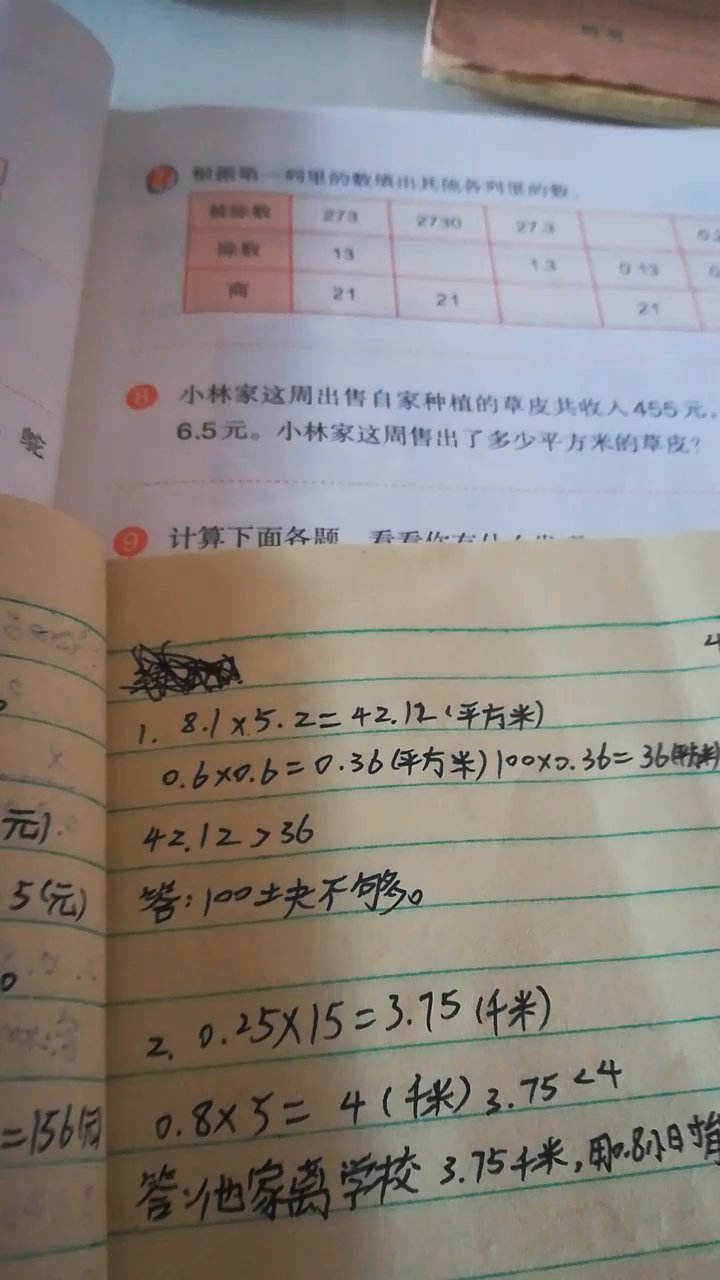 根据第一列里的数填出其他各列里的数。
被除数 273 2730 27.3
除数 13 1.3 0.13
商 21 21 21
8 小林家这周出售自家种植的草皮共收入455元,
6.5元。小林家这周售出了多少平方米的草皮?
鸵
9 计算下面各题
1. 8.1×5.2=42.12(平方米)
0.6×0.6=0.36(平方米) 100×0.36=36(平方米)
元)
42.12>36
5(元)
答:100块不够。
2. 0.25×15=3.75(千米)
0.8×5=4(千米) 3.75<4
=156(元)
答:他家离学校3.75千米,用0.8小时